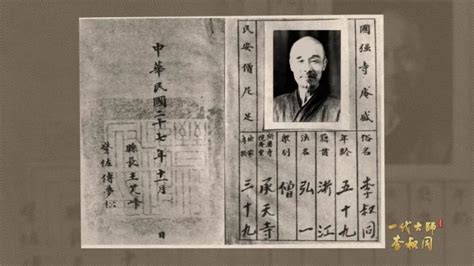 國强寺庵盛
民安僧尼足
俗名 李叔同
年齡 五十九
籍貫 浙江
法名 弘一
類別 僧
承天寺
三十九
中華民國二十七年十一月 日
縣長王笑峰
警佐
一代大師
李叔同